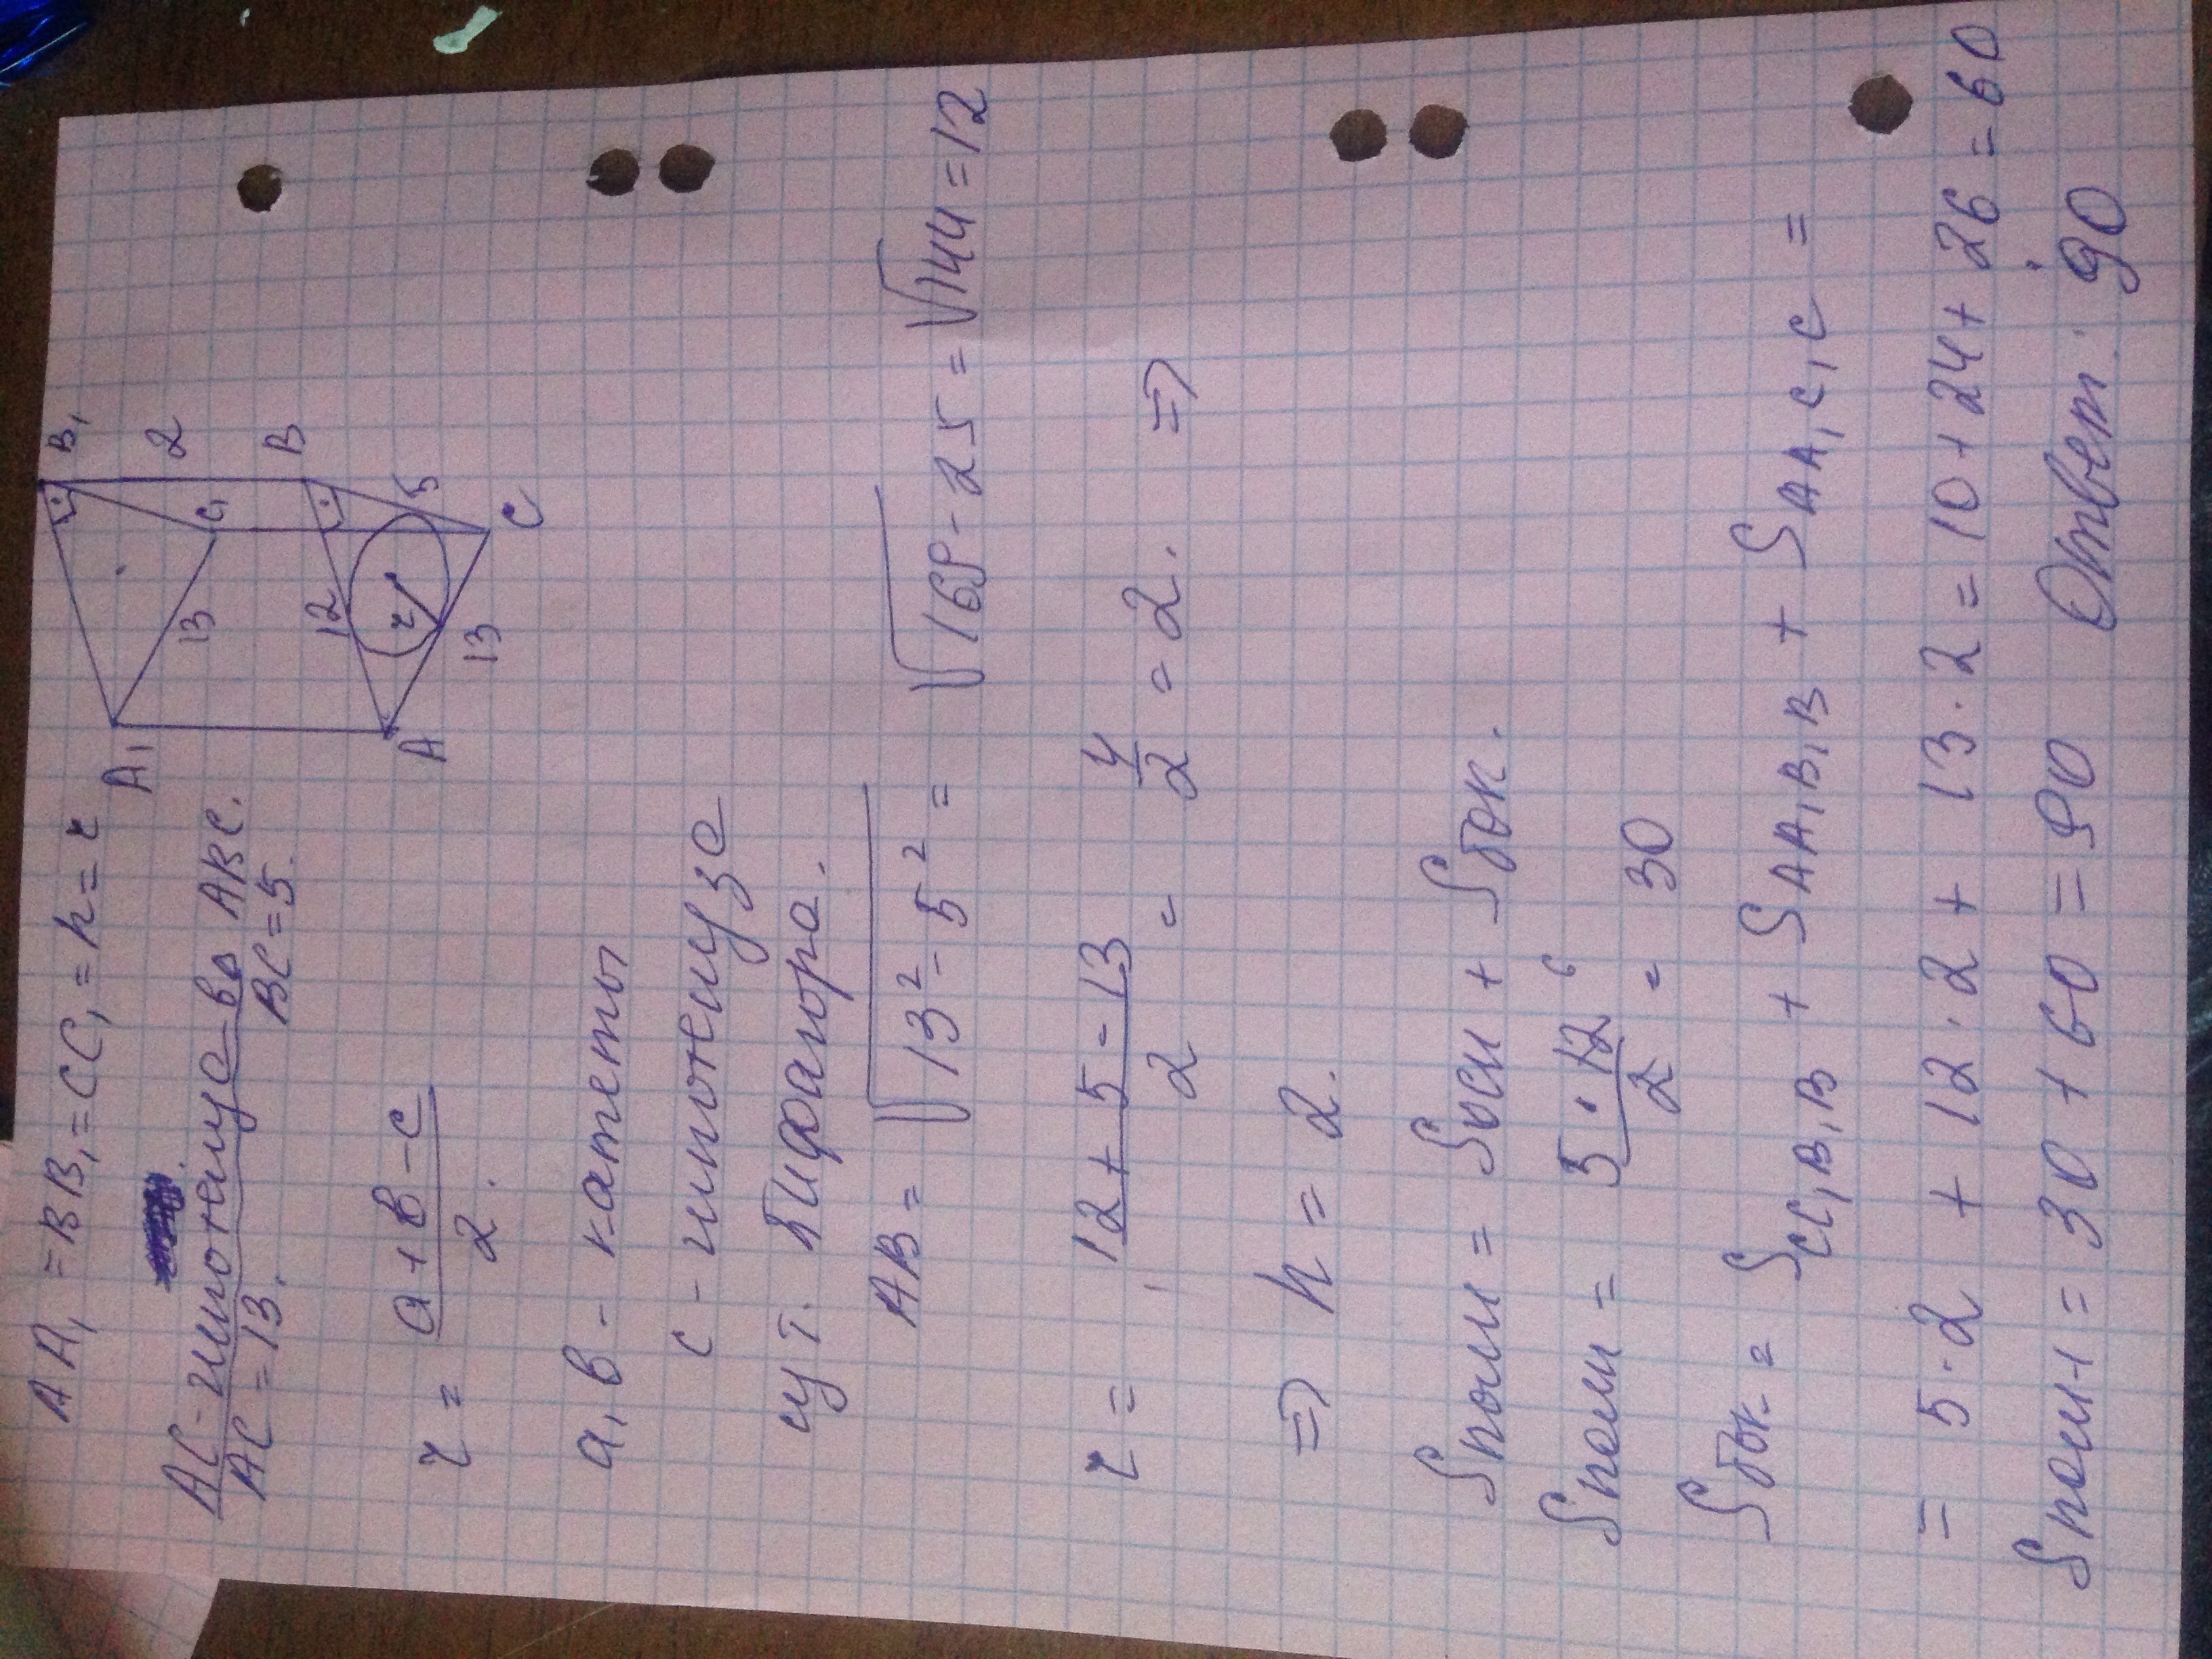 AA₁ = BB₁ = CC₁ = h = r
AC - гипотенуза в △ ABC.
AC = 13. BC = 5.
r = (a + b - c) / 2.
a, b - катеты
c - гипотенуза
из т. Пифагора.
AB = √(13² - 5²) = √(169 - 25) = √144 = 12
r = (12 + 5 - 13) / 2 = 4/2 = 2. =>
=> h = 2.
Sполн = Sосн + Sбок.
Sполн = (5 · 12) / 2 = 30
6
Sбок. = SCC₁B₁B + SAA₁B₁B + SAA₁C₁C =
= 5·2 + 12·2 + 13·2 = 10 + 24 + 26 = 60
Sполн = 30 + 60 = 90 Ответ: 90
A₁
B₁
C₁
13
2
12
B
r
5
13
A
C